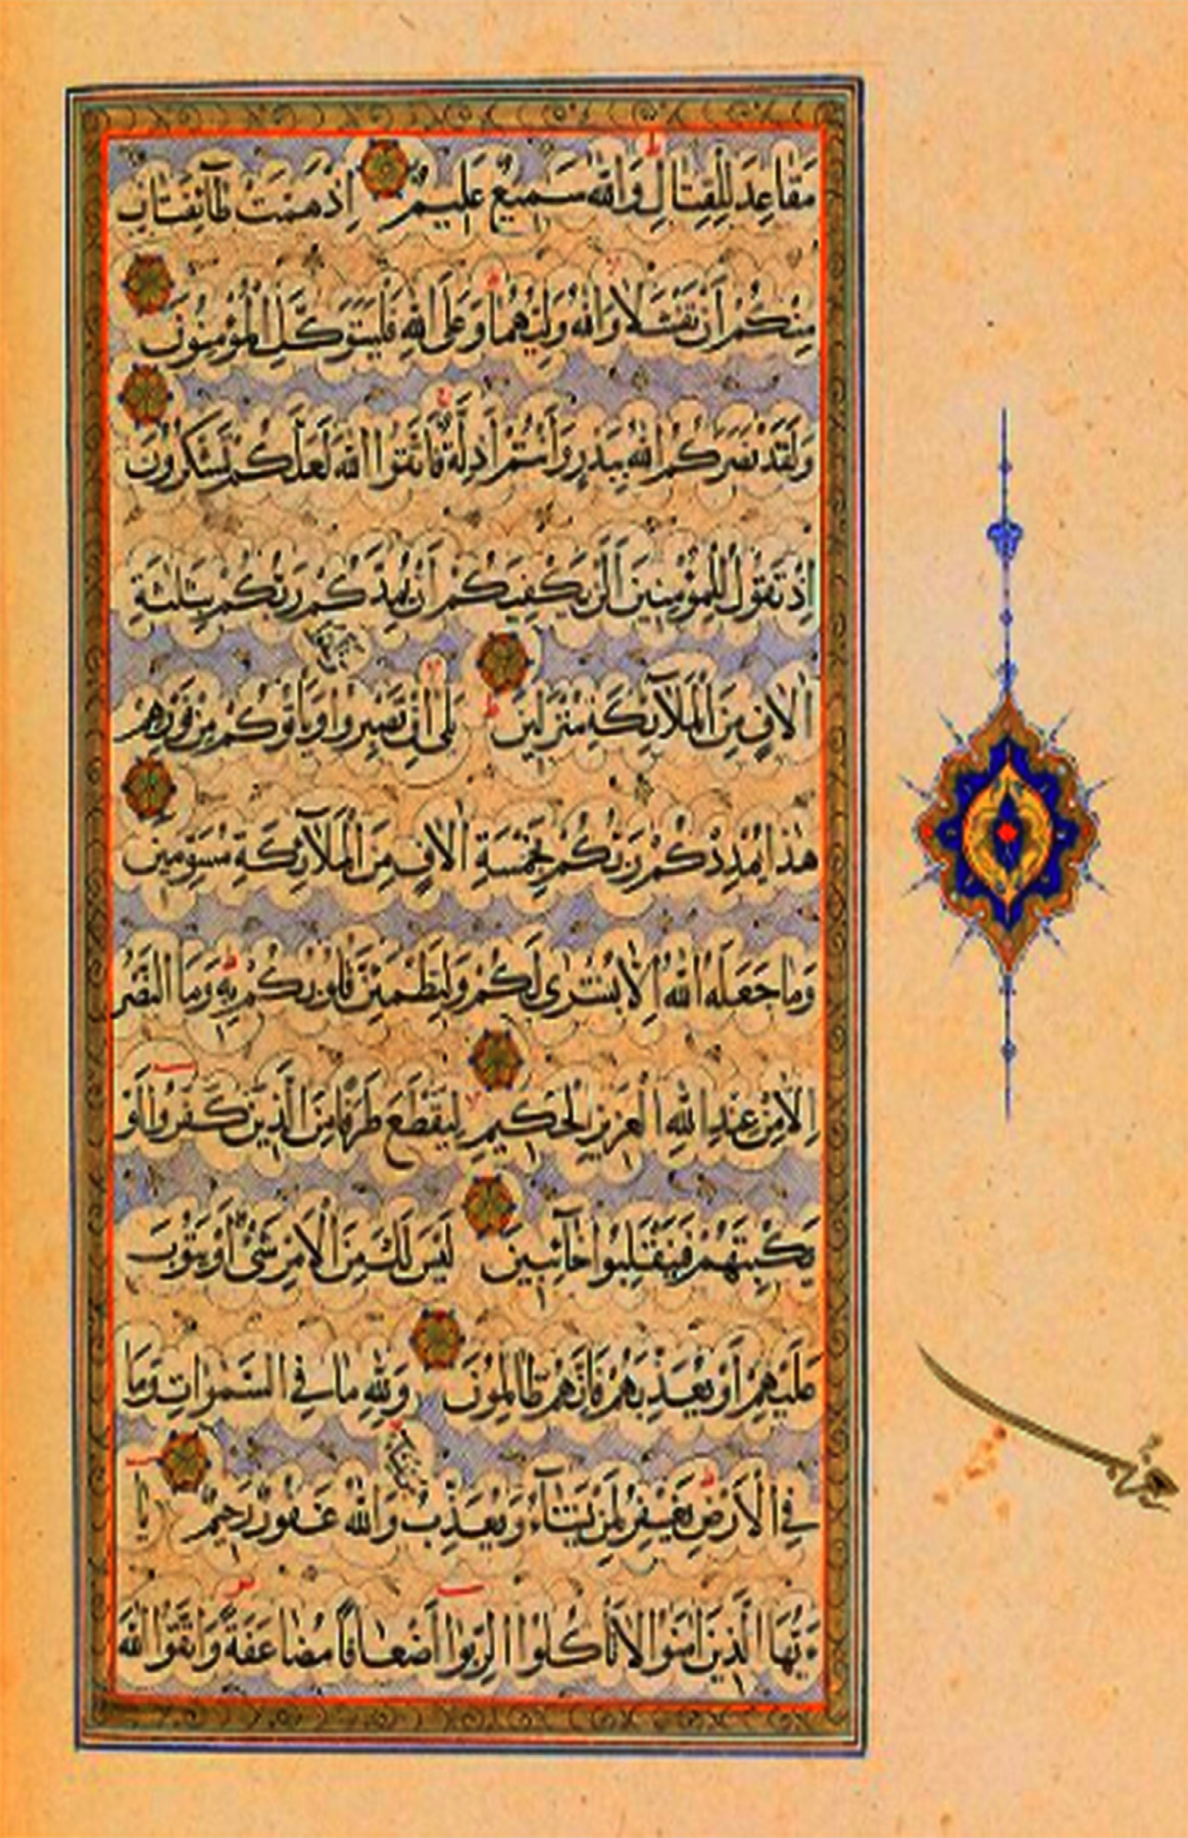 مَقَاعِدَ لِلْقِتَالِ وَاللّٰهُ سَمِيعٌ عَلِيمٌ اِذْ هَمَّتْ طَآئِفَتَانِ
مِنْكُمْ اَنْ تَفْشَلَا وَاللّٰهُ وَلِيُّهُمَا وَعَلَى اللّٰهِ فَلْيَتَوَكَّلِ الْمُؤْمِنُونَ
وَلَقَدْ نَصَرَكُمُ اللّٰهُ بِبَدْرٍ وَاَنْتُمْ اَذِلَّةٌ فَاتَّقُوا اللّٰهَ لَعَلَّكُمْ تَشْكُرُونَ
اِذْ تَقُولُ لِلْمُؤْمِنِينَ اَلَنْ يَكْفِيَكُمْ اَنْ يُمِدَّكُمْ رَبُّكُمْ بِثَلٰثَةِ
اٰلَافٍ مِنَ الْمَلَآئِكَةِ مُنْزَلِينَ بَلٰى اِنْ تَصْبِرُوا وَيَأْتُوكُمْ مِنْ فَوْرِهِمْ
هٰذَا يُمْدِدْكُمْ رَبُّكُمْ بِخَمْسَةِ اٰلَافٍ مِنَ الْمَلَآئِكَةِ مُسَوِّمِينَ
وَمَا جَعَلَهُ اللّٰهُ اِلَّا بُشْرٰى لَكُمْ وَلِتَطْمَئِنَّ قُلُوبُكُمْ بِهِ وَمَا النَّصْرُ
اِلَّا مِنْ عِنْدِ اللّٰهِ الْعَزِيزِ الْحَكِيمِ لِيَقْطَعَ طَرَفًا مِنَ الَّذِينَ كَفَرُوا اَوْ
يَكْبِتَهُمْ فَيَنْقَلِبُوا خَآئِبِينَ لَيْسَ لَكَ مِنَ الْاَمْرِ شَيْءٌ اَوْ يَتُوبَ
عَلَيْهِمْ اَوْ يُعَذِّبَهُمْ فَاِنَّهُمْ ظَالِمُونَ وَلِلّٰهِ مَا فِي السَّمٰوَاتِ وَمَا
فِي الْاَرْضِ يَغْفِرُ لِمَنْ يَشَآءُ وَيُعَذِّبُ وَاللّٰهُ غَفُورٌ رَحِيمٌ يَا
ءَيُّهَا الَّذِينَ اٰمَنُوا لَا تَأْكُلُوا الرِّبٰوا اَضْعَافًا مُضَاعَفَةً وَاتَّقُوا اللّٰهَ